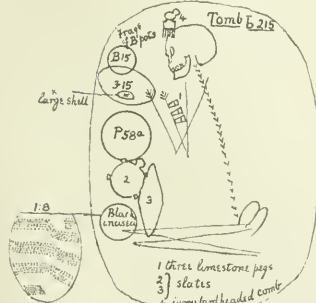 Tomb b 215
4
Frags
B pots
B15
3·15
x
Large shell
1
P58a
2
3
1:8
Black
incised
1 three limestone pegs
2
3 } slates
ivory birdheaded comb